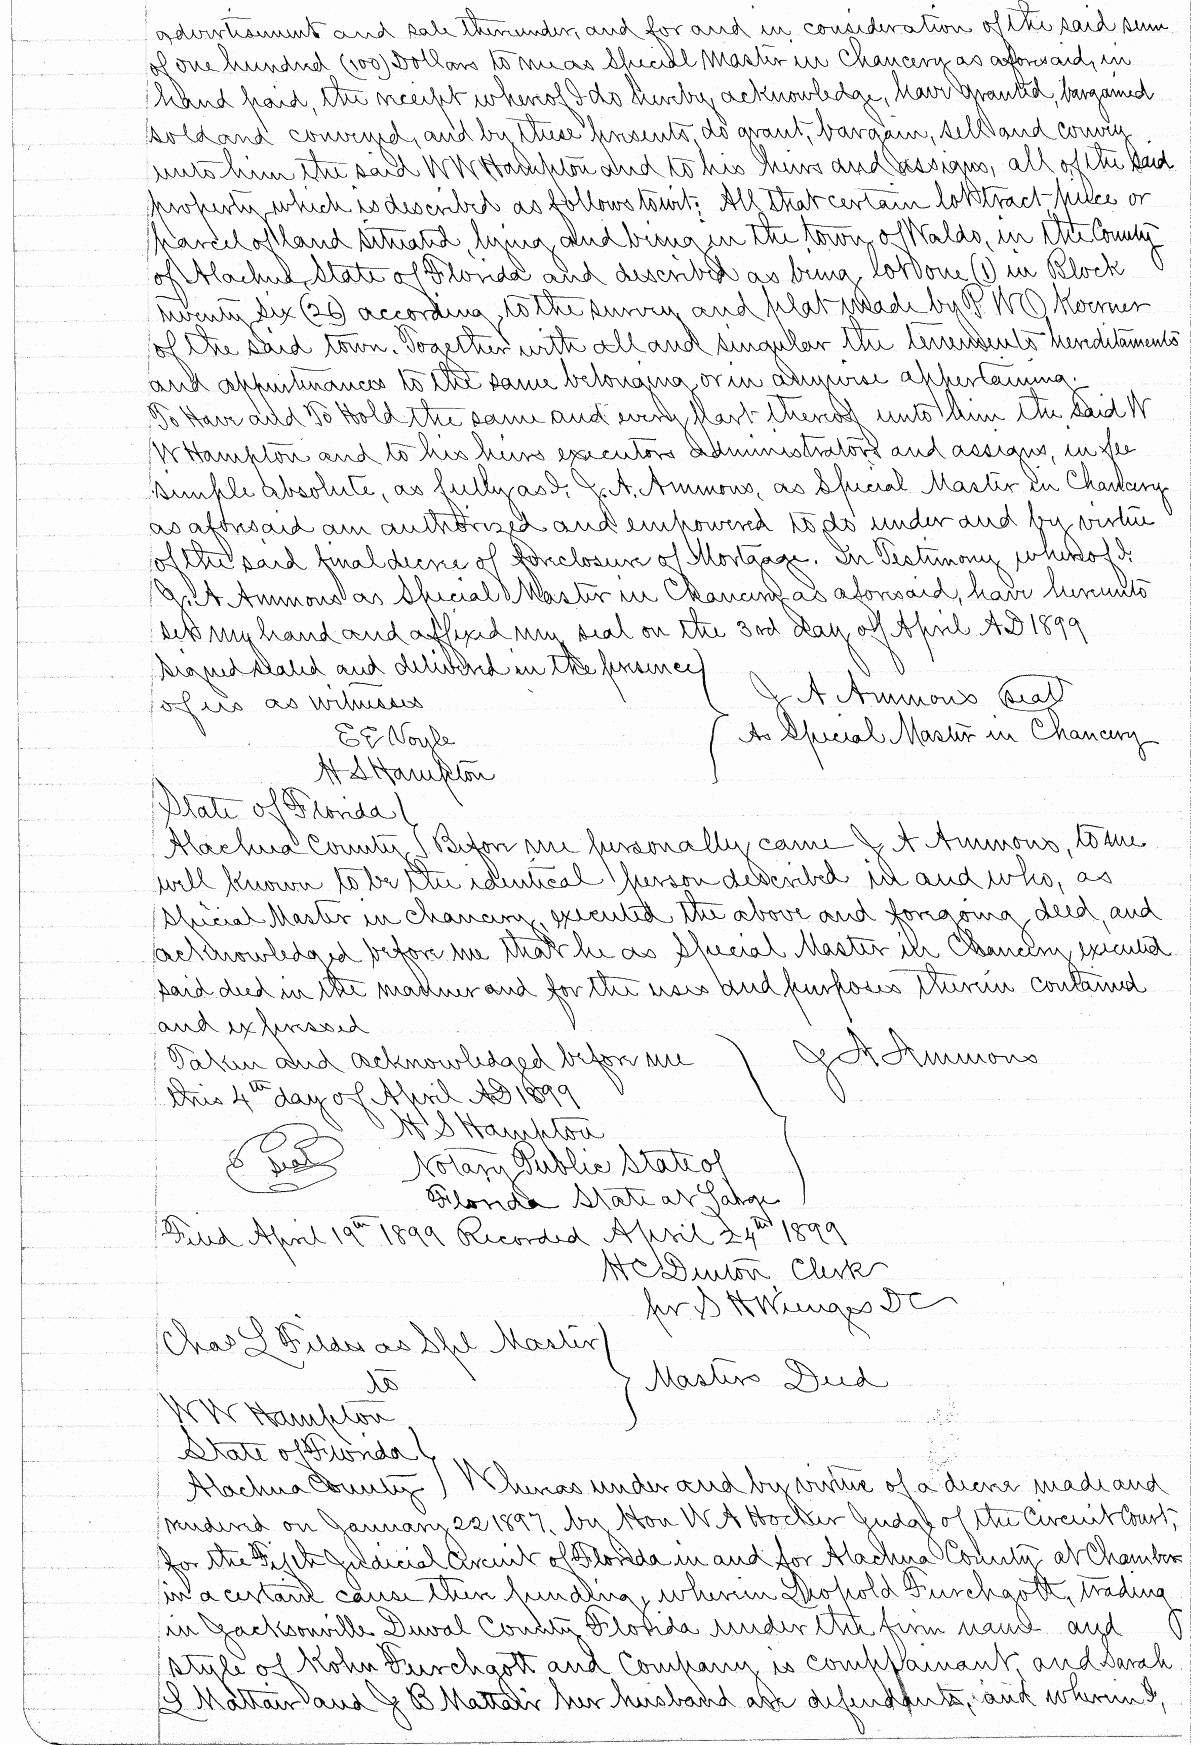 advertisement and sale thereunder, and for and in consideration of the said sum
of one hundred (100) Dollars to me as Special Master in Chancery as aforesaid, in
hand paid, the receipt whereof I do hereby acknowledge, have granted, bargained
sold and conveyed, and by these presents, do grant, bargain, sell and convey
unto him the said W W Hampton and to his heirs and assigns, all of the said
property which is described as follows towit: All that certain lot tract piece or
parcel of land situated, lying and being in the town of Waldo, in the County
of Alachua, State of Florida and described as being lot one (1) in Block
twenty six (26) according to the survey and plat made by P W O Koerner
of the said town. Together with all and singular the tenements hereditaments
and appurtenances to the same belonging or in anywise appertaining.
To Have and To Hold the same and every part thereof unto him the said W
W Hampton and to his heirs executors administrators and assigns, in fee
simple absolute, as fully as I, J. A. Ammons, as Special Master in Chancery
as aforesaid am authorized and empowered to do under and by virtue
of the said final decree of foreclosure of Mortgage. In Testimony whereof I.
J. A Ammons as Special Master in Chancery as aforesaid, have hereunto
set my hand and affixed my seal on the 3rd day of April AD 1899
Signed sealed and delivered in the presence
of us as witnesses
J A Ammons seal
E E Voyle
As Special Master in Chancery
H S Hampton
State of Florida
Alachua County } Before me personally came J A Ammons, to me
well known to be the identical person described in and who, as
Special Master in Chancery, executed the above and foregoing deed, and
acknowledged before me that he as Special Master in Chancery executed
said deed in the manner and for the uses and purposes therein contained
and expressed
Taken and acknowledged before me
J A Ammons
this 4th day of April AD 1899
H S Hampton
Seal
Notary Public State of
Florida State at Large
Filed April 19th 1899 Recorded April 24th 1899
H C Denton Clerk
pr S H Wienges DC
Chas L Fildes as Spl Master
to
Masters Deed
W W Hampton
State of Florida
Alachua County } Whereas under and by virtue of a decree made and
rendered on January 22 1897, by Hon W A Hocker Judge of the Circuit Court,
for the Fifth Judicial Circuit of Florida in and for Alachua County at Chambers
in a certain cause then pending, wherein Leopold Furchgott, trading
in Jacksonville Duval County Florida under the firm name and
style of Kohn Furchgott and Company is complainant, and Sarah
L Mattair and J B Mattair her husband are defendants, and wherein I,